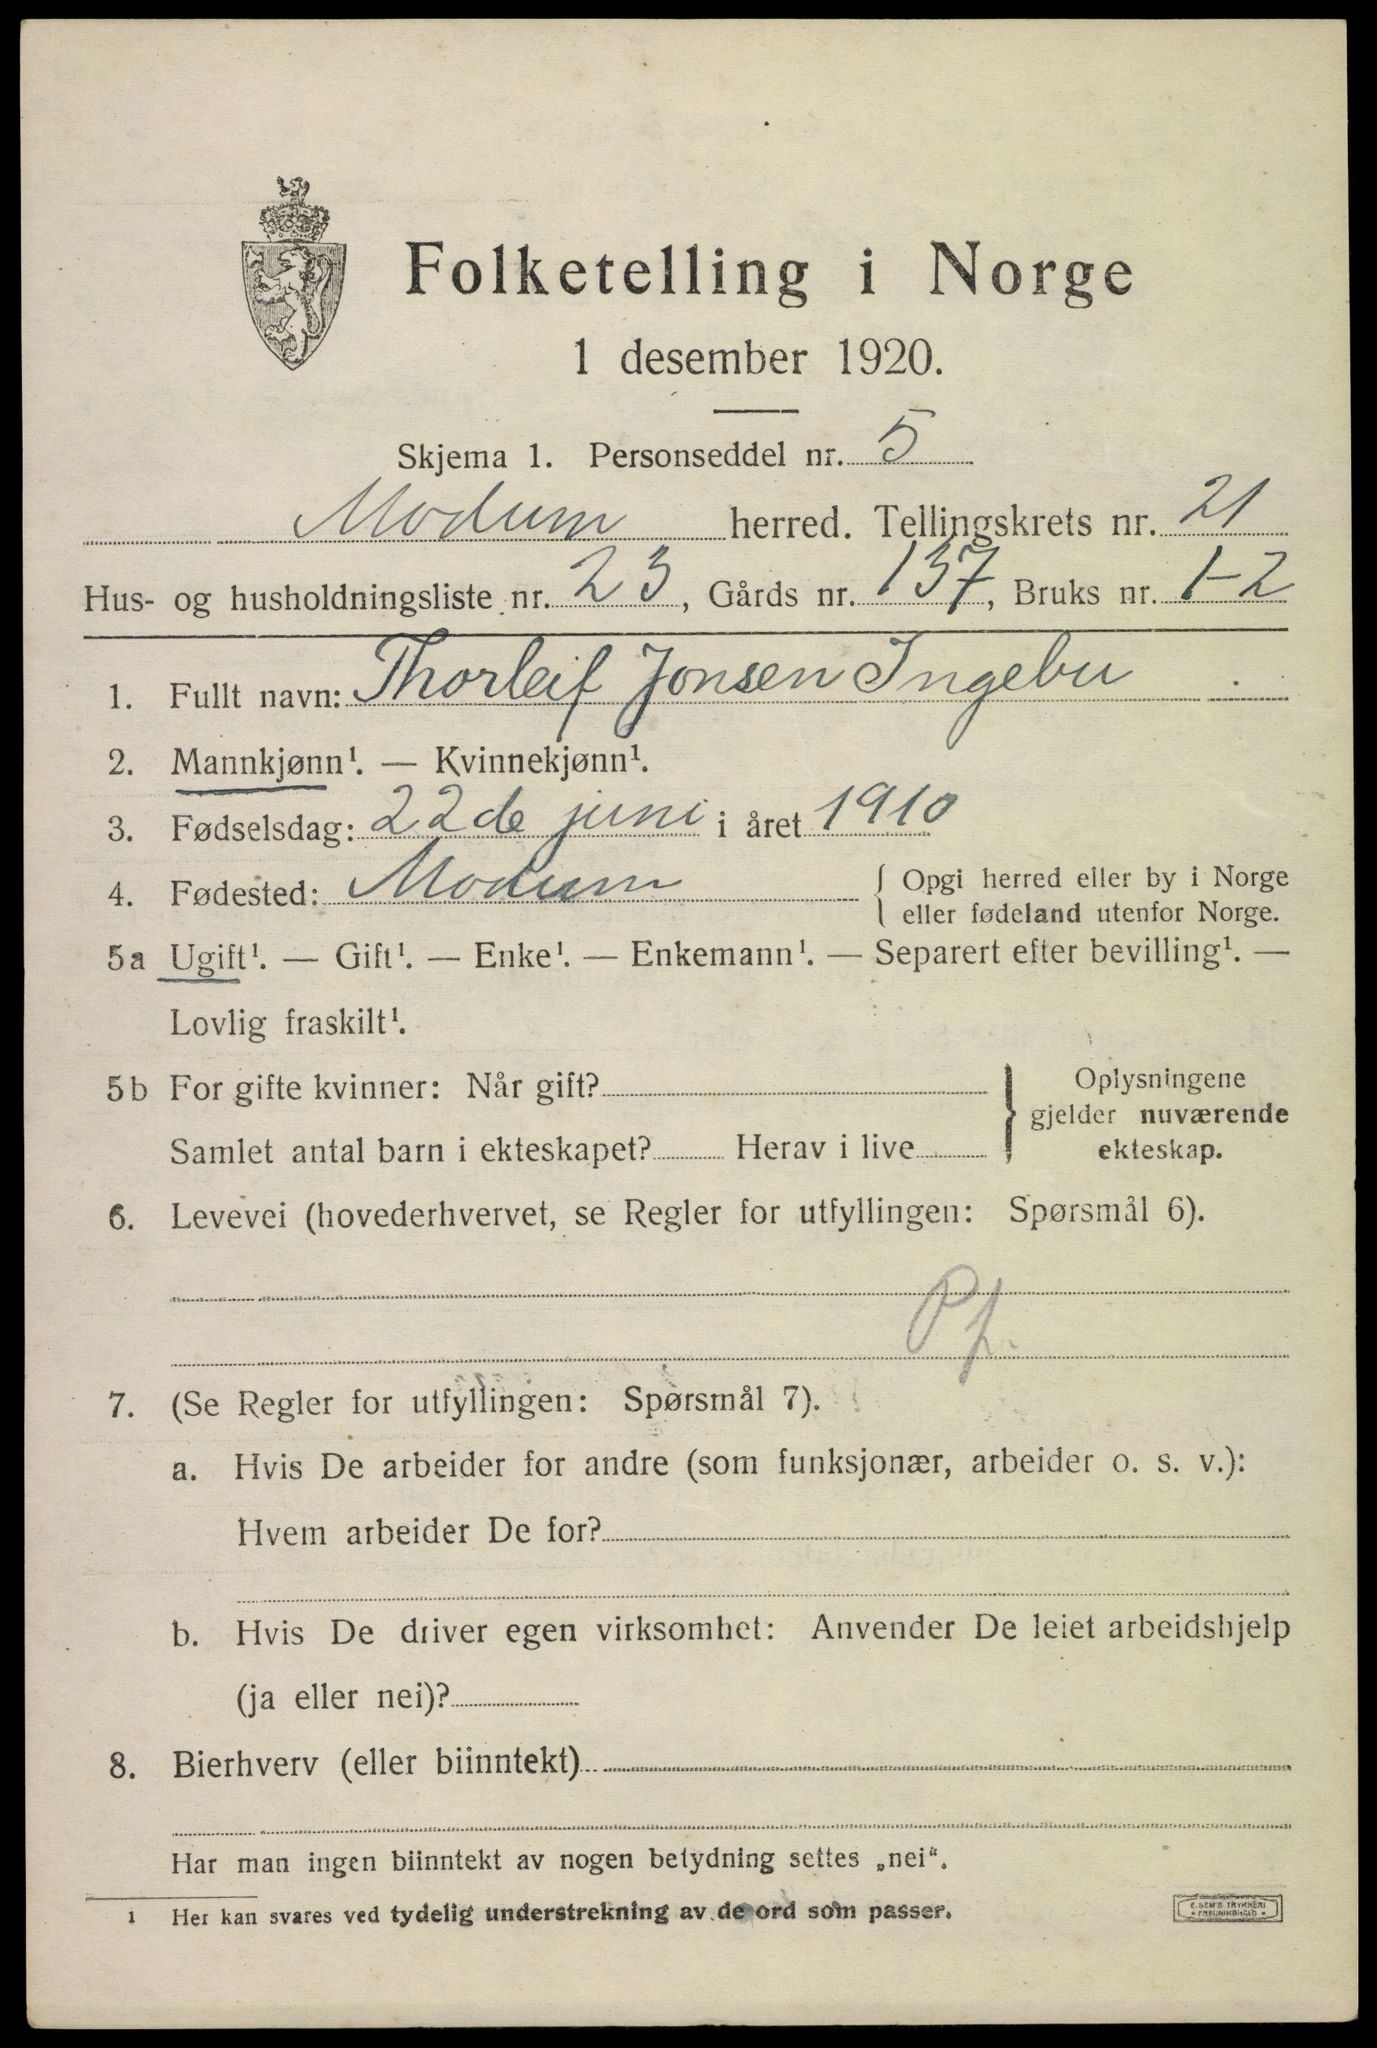 Folketelling i Norge
1 desember 1920.
Skjema 1. Personseddel nr. 5
Modum herred. Tellingskrets nr. 21
Hus- og husholdningsliste nr. 23, Gårds nr. 137, Bruks nr. 1-2
1. Fullt navn: Thorleif Jonsen Ingebu
2. Mannkjønn¹. — Kvinnekjønn¹.
3. Fødselsdag: 22de juni i året 1910
4. Fødested: Modum { Opgi herred eller by i Norge
eller fødeland utenfor Norge.
5a Ugift¹. — Gift¹. — Enke¹. — Enkemann¹. — Separert efter bevilling¹. —
Lovlig fraskilt¹.
5b For gifte kvinner: Når gift? } Oplysningene
gjelder nuværende
Samlet antal barn i ekteskapet? Herav i live
ekteskap.
6. Levevei (hovederhvervet, se Regler for utfyllingen: Spørsmål 6).
Pf.
7. (Se Regler for utfyllingen: Spørsmål 7).
a. Hvis De arbeider for andre (som funksjonær, arbeider o. s. v.):
Hvem arbeider De for?
b. Hvis De driver egen virksomhet: Anvender De leiet arbeidshjelp
(ja eller nei)?
8. Bierhverv (eller biinntekt)
Har man ingen biinntekt av nogen betydning settes „nei“.
1 Her kan svares ved tydelig understrekning av de ord som passer.
E. SEM'S TRYKKERI
FREDRIKSHALD